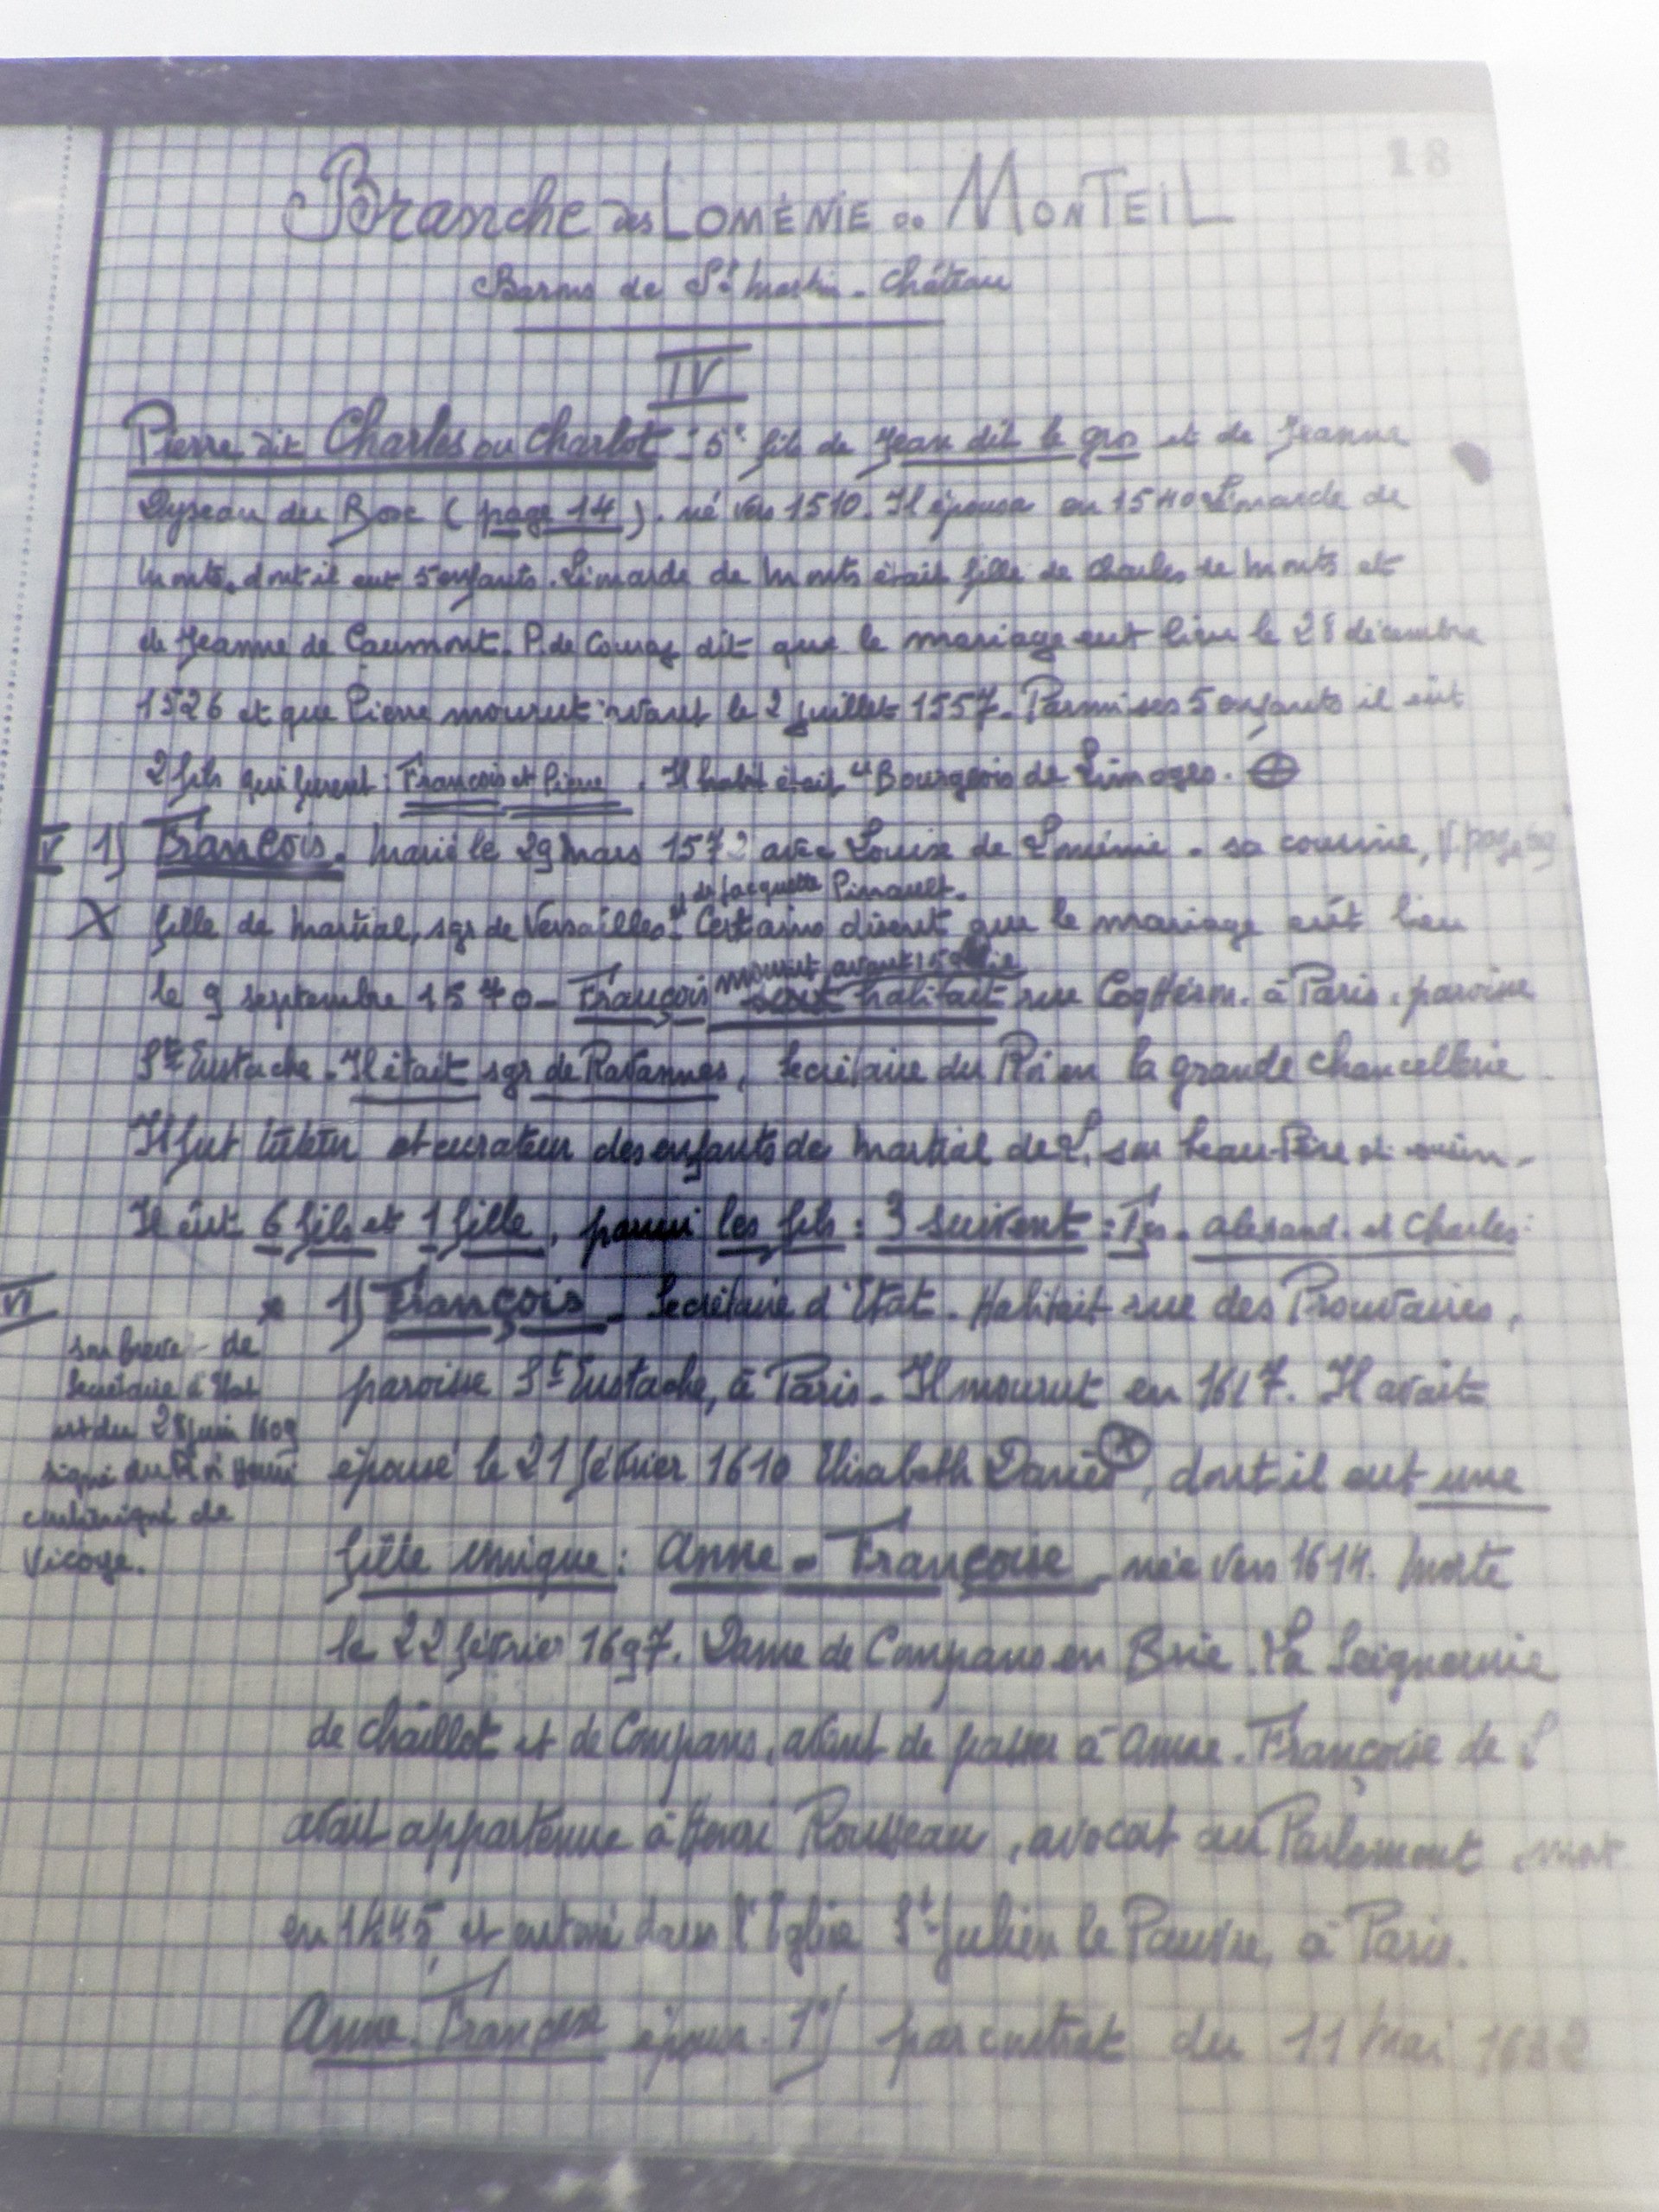 18
Branche des LOMÉNIE de MONTEIL
Barons de St Martin-Château
IV
Pierre dit Charles ou Charlot - 5e fils de Jean dit le gros et de Jeanne
du Bosc (page 14). né vers 1510. Il épousa en 1540 Léonarde de
Monts, dont il eut 5 enfants. Léonarde de Monts était fille de Charles de Monts et
de Jeanne de Caumont. P. de dit que le mariage eut lieu le 28 décembre
1526 et que Pierre mourut avant le 2 juillet 1557. Parmi ses 5 enfants il eût
2 fils qui furent : François et Pierre. Il était "Bourgeois de Limoges. ⊕
V 1) François. Marié le 29 Mars 1572 avec Louise de Loménie - sa cousine, V. page
et de Jacquette Pinault.
X fille de Martial, sgr de Versailles. Certains disent que le mariage eût lieu
mourut avant
le 9 septembre 1570 - François habitait rue CoqHéron. à Paris, paroisse
St Eustache. Il était sgr de Ravannes, Secrétaire du Roi en la grande chancellerie
Il fut tuteur et curateur des enfants de Martial de L. son beau-Père et cousin.
Il eût 6 fils et 1 fille, parmi les fils : 3 suivent : Fçs. Alexand. et Charles :
VI * 1) François. Secrétaire d'Etat. Habitait rue des Prouvaires,
son brevet de
Secrétaire d'Etat
est du 28 juin 1609
signé du Roi Henri
contresigné de
Vicose.
paroisse St Eustache, à Paris. Il mourut en 1617. Il avait
épousé le 21 février 1610 Elisabeth Danès (x), dont il eut une
fille unique : Anne-Françoise - née vers 1614. Morte
le 22 février 1697. Dame de Compans en Brie. La Seigneurie
de Chaillot et de Compans, avant de passer à Anne-Françoise de L
avait appartenue à Henri Rousseau, avocat au Parlement, mort
en 1445 et enterré dans l'Eglise St Julien le Pauvre, à Paris.
Anne-Françoise épousa 1°) par contrat du 11 Mai 1632